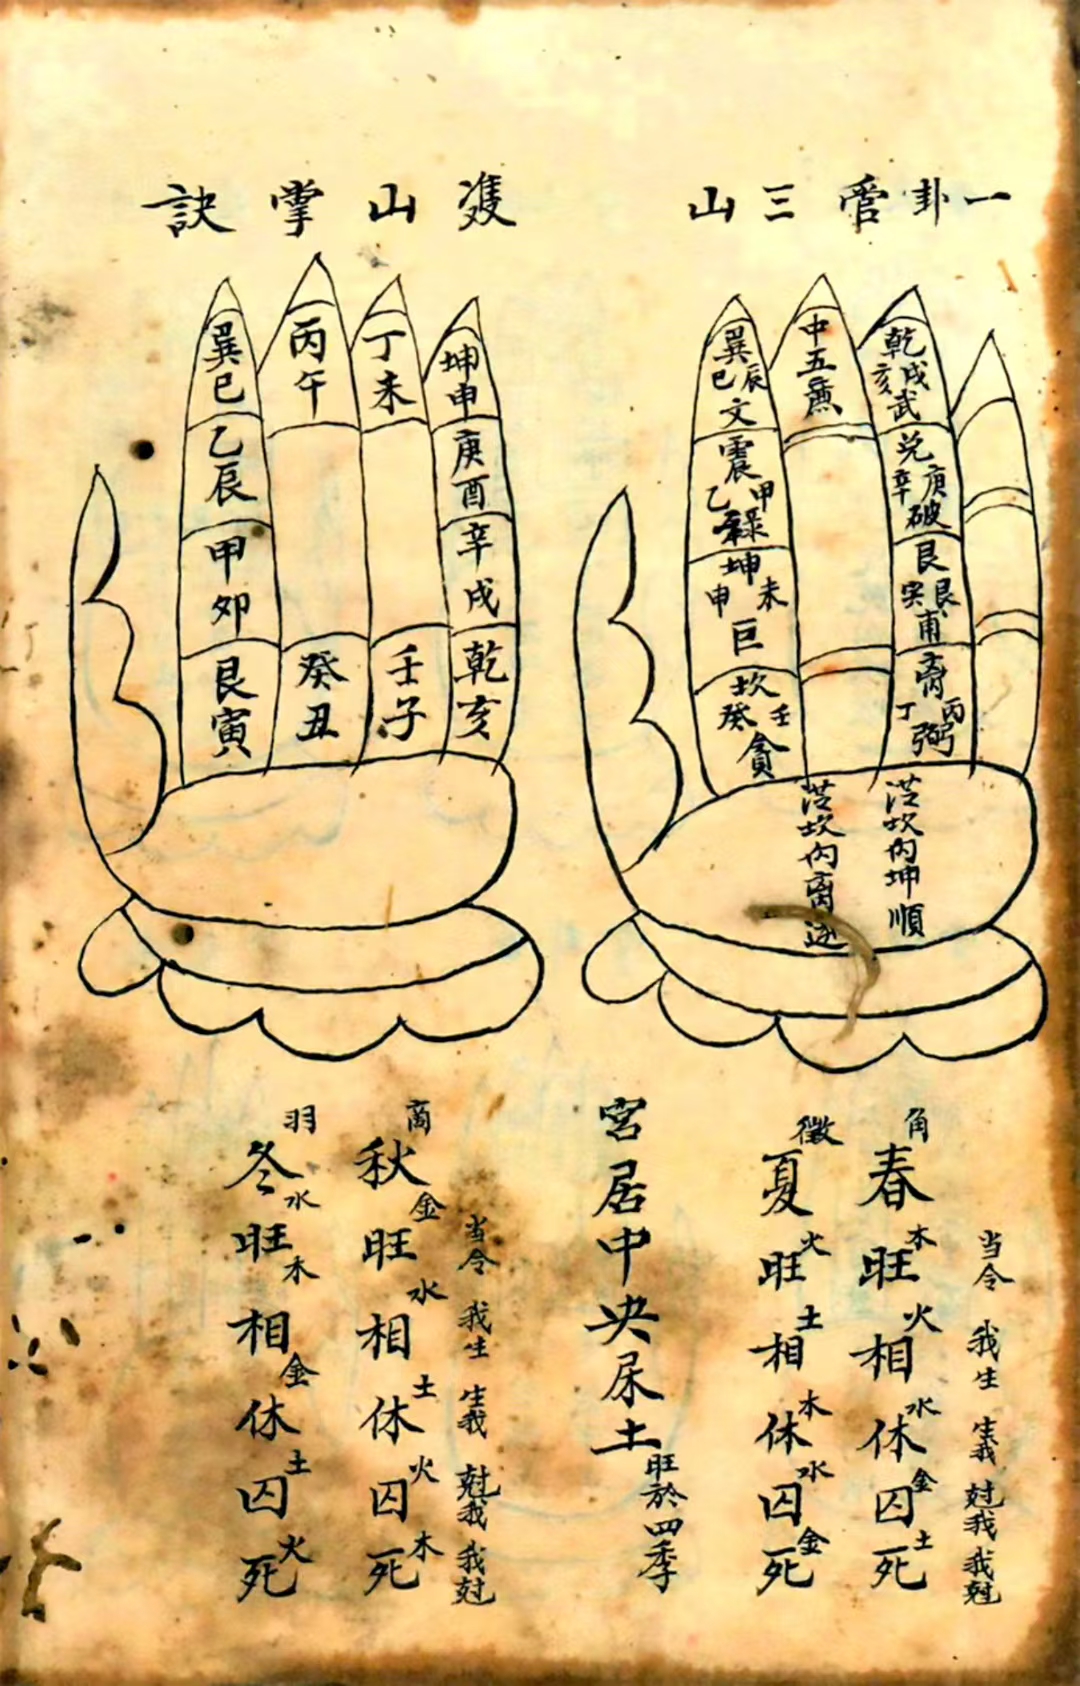 一卦管三山
乾
戌亥
武
兌
庚辛
破
艮
艮寅
甫
离
丙丁
弼
中五廉
巽
辰巳
文
震
甲乙
祿
坤
未申
巨
坎
壬癸
貪
坎内坤順
坎内离逆
雙山掌訣
坤申
庚酉
辛戌
乾亥
丁未
壬子
丙午
癸丑
巽巳
乙辰
甲卯
艮寅
当令 我生 生我 尅我 我尅
角
春 旺木 相火 休水 囚金 死土
徵
夏 旺火 相土 休木 囚水 死金
宮居中央屬土旺於四季
当令 我生 生我 尅我 我尅
商
秋 旺金 相水 休土 囚火 死木
羽
冬 旺水 相木 休金 囚土 死火